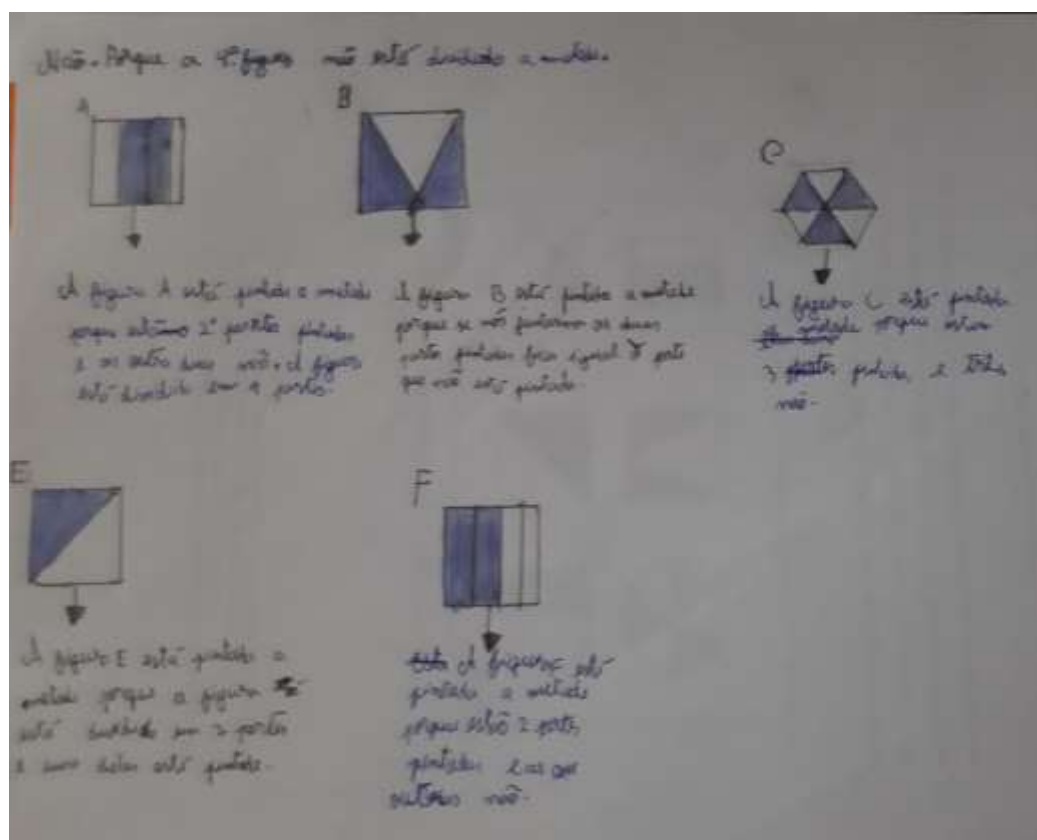 Não. Porque a 4ª figura não está dividida a metade.
A
B
C
A figura A está pintada a metade
porque estão 2 partes pintadas
e as outras duas não. A figura
está dividida em 4 partes.
A figura B está pintada a metade
porque se nós juntarmos as duas
partes pintadas fica igual à parte
que não está pintada.
A figura C está pintada
a metade porque estão
3 partes pintadas e três
não.
E
F
A figura E está pintada a
metade porque a figura
está dividida em 2 partes
e uma delas está pintada.
A figura F está
pintada a metade
porque estão 2 partes
pintadas e as
outras não.